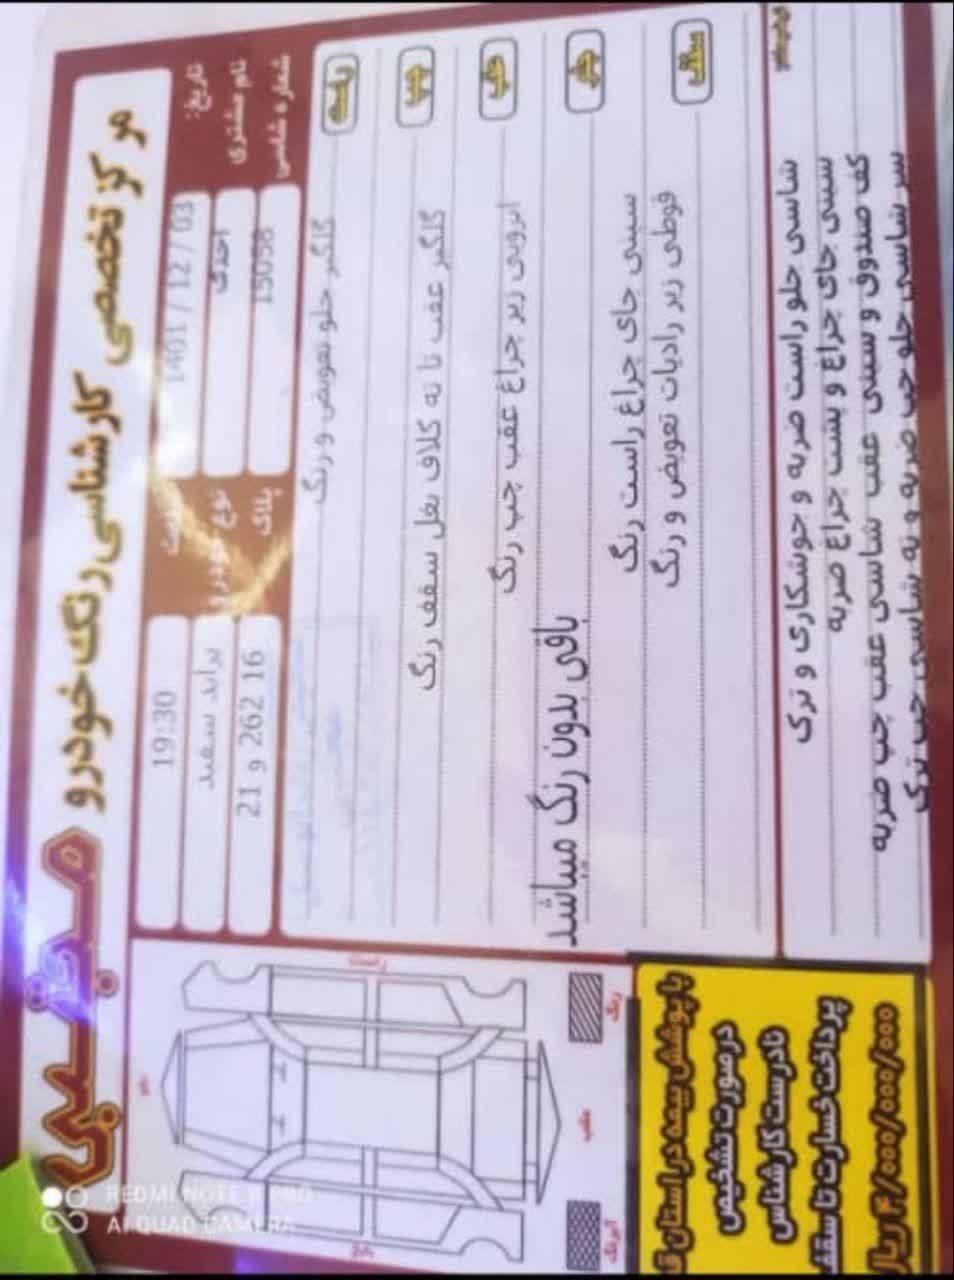 مرکز تخصصی کارشناسی رنگ خودرو
تاریخ: 1401 / 12 / 03
19:30
نام مشتری احدی
نوع خودرو پراید سفید
شماره شاسی 15058
پلاک 21 و 262 16
راست
گلگیر جلو تعویض و رنگ
چپ
گلگیر عقب تا ته کلاف بغل سقف رنگ
عقب
ابرویی زیر چراغ عقب چپ رنگ
باقی بدون رنگ میباشد
جلو
سینی جای چراغ راست رنگ
قوطی زیر رادیات تعویض و رنگ
سقف
شاسی جلو راست ضربه و جوشکاری و ترک
سینی جای چراغ و پشت چراغ ضربه
کف صندوق و سینی عقب شاسی عقب چپ ضربه
سر شاسی جلو چپ ضربه و ته شاسی چپ ترک
راست
جلو
عقب
رنگ
با پوشش بیمه در استان
درصورت تشخیص
نادرست کارشناس
پرداخت خسارت تا سقف
ریال
REDMI NOTE 8 PRO
AI QUAD CAMERA